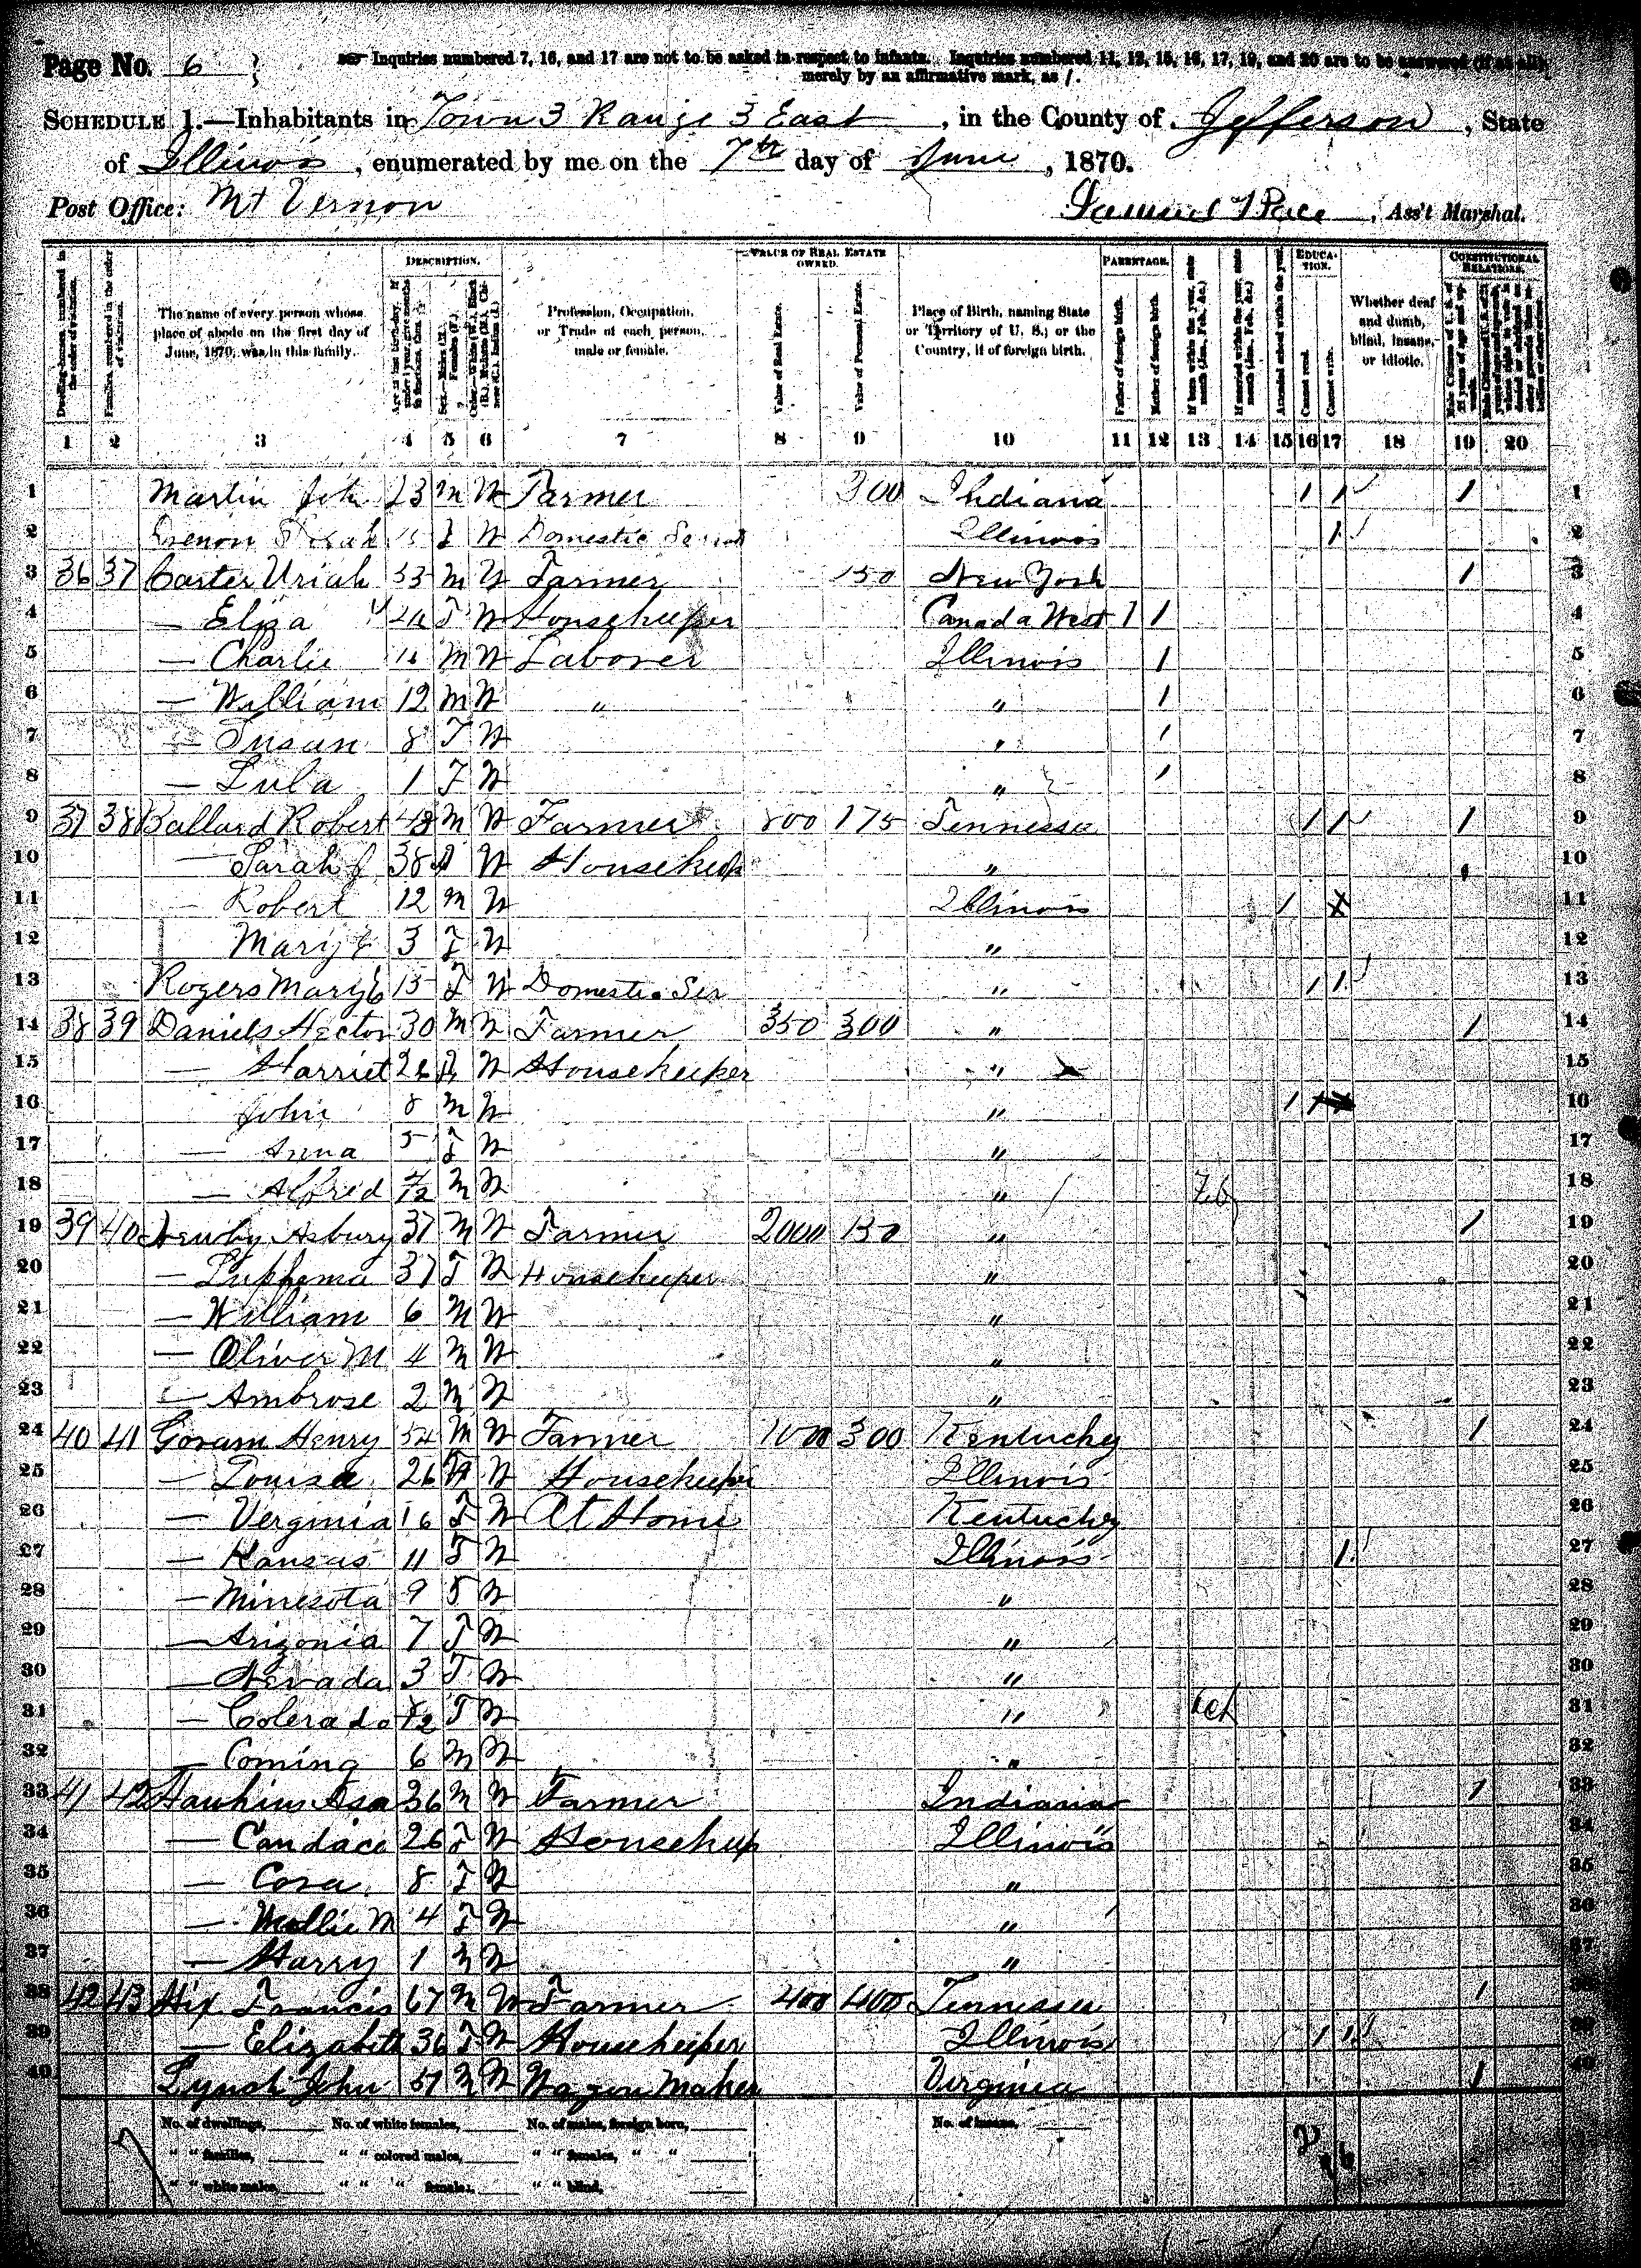 Page No. 6
Inquiries numbered 7, 16, and 17 are not to be asked in respect to infants. Inquiries numbered 11, 12, 15, 16, 17, 19, and 20 are to be answered (if at all)
merely by an affirmative mark, as /.
SCHEDULE 1.—Inhabitants in Town 3 Range 3 East, in the County of Jefferson, State
of Illinois, enumerated by me on the 7th day of June, 1870.
Post Office: Mt Vernon Samuel T Pace, Ass't Marshal.
DESCRIPTION. VALUE OF REAL ESTATE OWNED. PARENTAGE. EDUCATION. CONSTITUTIONAL RELATIONS.
Dwelling-houses, numbered in the order of visitation.
Families, numbered in the order of visitation.
The name of every person whose place of abode on the first day of June, 1870, was in this family.
Profession, Occupation, or Trade of each person, male or female.
Value of Real Estate.
Value of Personal Estate.
Place of Birth, naming State or Territory of U. S.; or the Country, if of foreign birth.
Father of foreign birth.
Mother of foreign birth.
If born within the year, state month (Jan., Feb., &c.)
If married within the year, state month (Jan., Feb., &c.)
Attended school within the year.
Cannot read.
Cannot write.
Whether deaf and dumb, blind, insane, or idiotic.
1 2 3 4 5 6 7 8 9 10 11 12 13 14 15 16 17 18 19 20
1 Martin 23 M W Farmer 300 Indiana / / / 1
2 F W Domestic Illinois / 2
3 36 37 Carter Uriah 33 M W Farmer 150 New York / 3
4 — Eliza F W Housekeeper Canada West 1 / 4
5 — Charlie M W Laborer Illinois / 5
6 — William 12 M W " " / 6
7 — Susan 8 F W " / 7
8 — Lula 1 F W " / 8
9 37 38 Ballard Robert 48 M W Farmer 800 175 Tennessee / / / 9
10 — Sarah J 38 F W Housekeep " 10
11 — Robert 12 M W Illinois / 11
12 Mary 3 F W " 12
13 Rogers Mary 15 F W Domestic Ser " / / 13
14 38 39 Daniels Hector 30 M W Farmer 350 300 " / 14
15 — Harriet 26 F W Housekeeper " 15
16 John 8 M W " / / 16
17 — Anna 5 F W " 17
18 — Alfred M W " Feb 18
19 39 40 Newby Asbury 37 M W Farmer 2000 150 " / 19
20 — Euphema 37 F W Housekeeper " 20
21 — William 6 M W " 21
22 — Oliver M 4 M W " 22
23 — Ambrose 2 M W " 23
24 40 41 Goram Henry 54 M W Farmer 1000 300 Kentucky / 24
25 — Louisa 26 F W Housekeeper Illinois 25
26 — Verginia 16 F W At Home Kentucky 26
27 — Kansas 11 F W Illinois / 27
28 — Minnesota 9 F W " 28
29 — Arizonia 7 F W " 29
30 — Nevada 3 F W " 30
31 — Colerado F W " Oct 31
32 — Coming 6 M W " 32
33 41 42 Hawkins Asa 36 M W Farmer Indiana / 33
34 — Candace 26 F W Housekeep Illinois 34
35 — Cora 8 F W " 35
36 — Mollie M 4 F W " 36
37 — Harry 1 M W " 37
38 42 43 Hix Francis 67 M W Farmer 400 400 Tennessee / 38
39 — Elizabeth 36 F W Housekeeper Illinois / / 39
40 Lynch John 51 M W Wagon Maker Virginia / 40
No. of dwellings, No. of white females, No. of males, foreign born, No. of insane,
" " families, " " colored males, " " females, " "
" " white males, " " " females, " " blind,